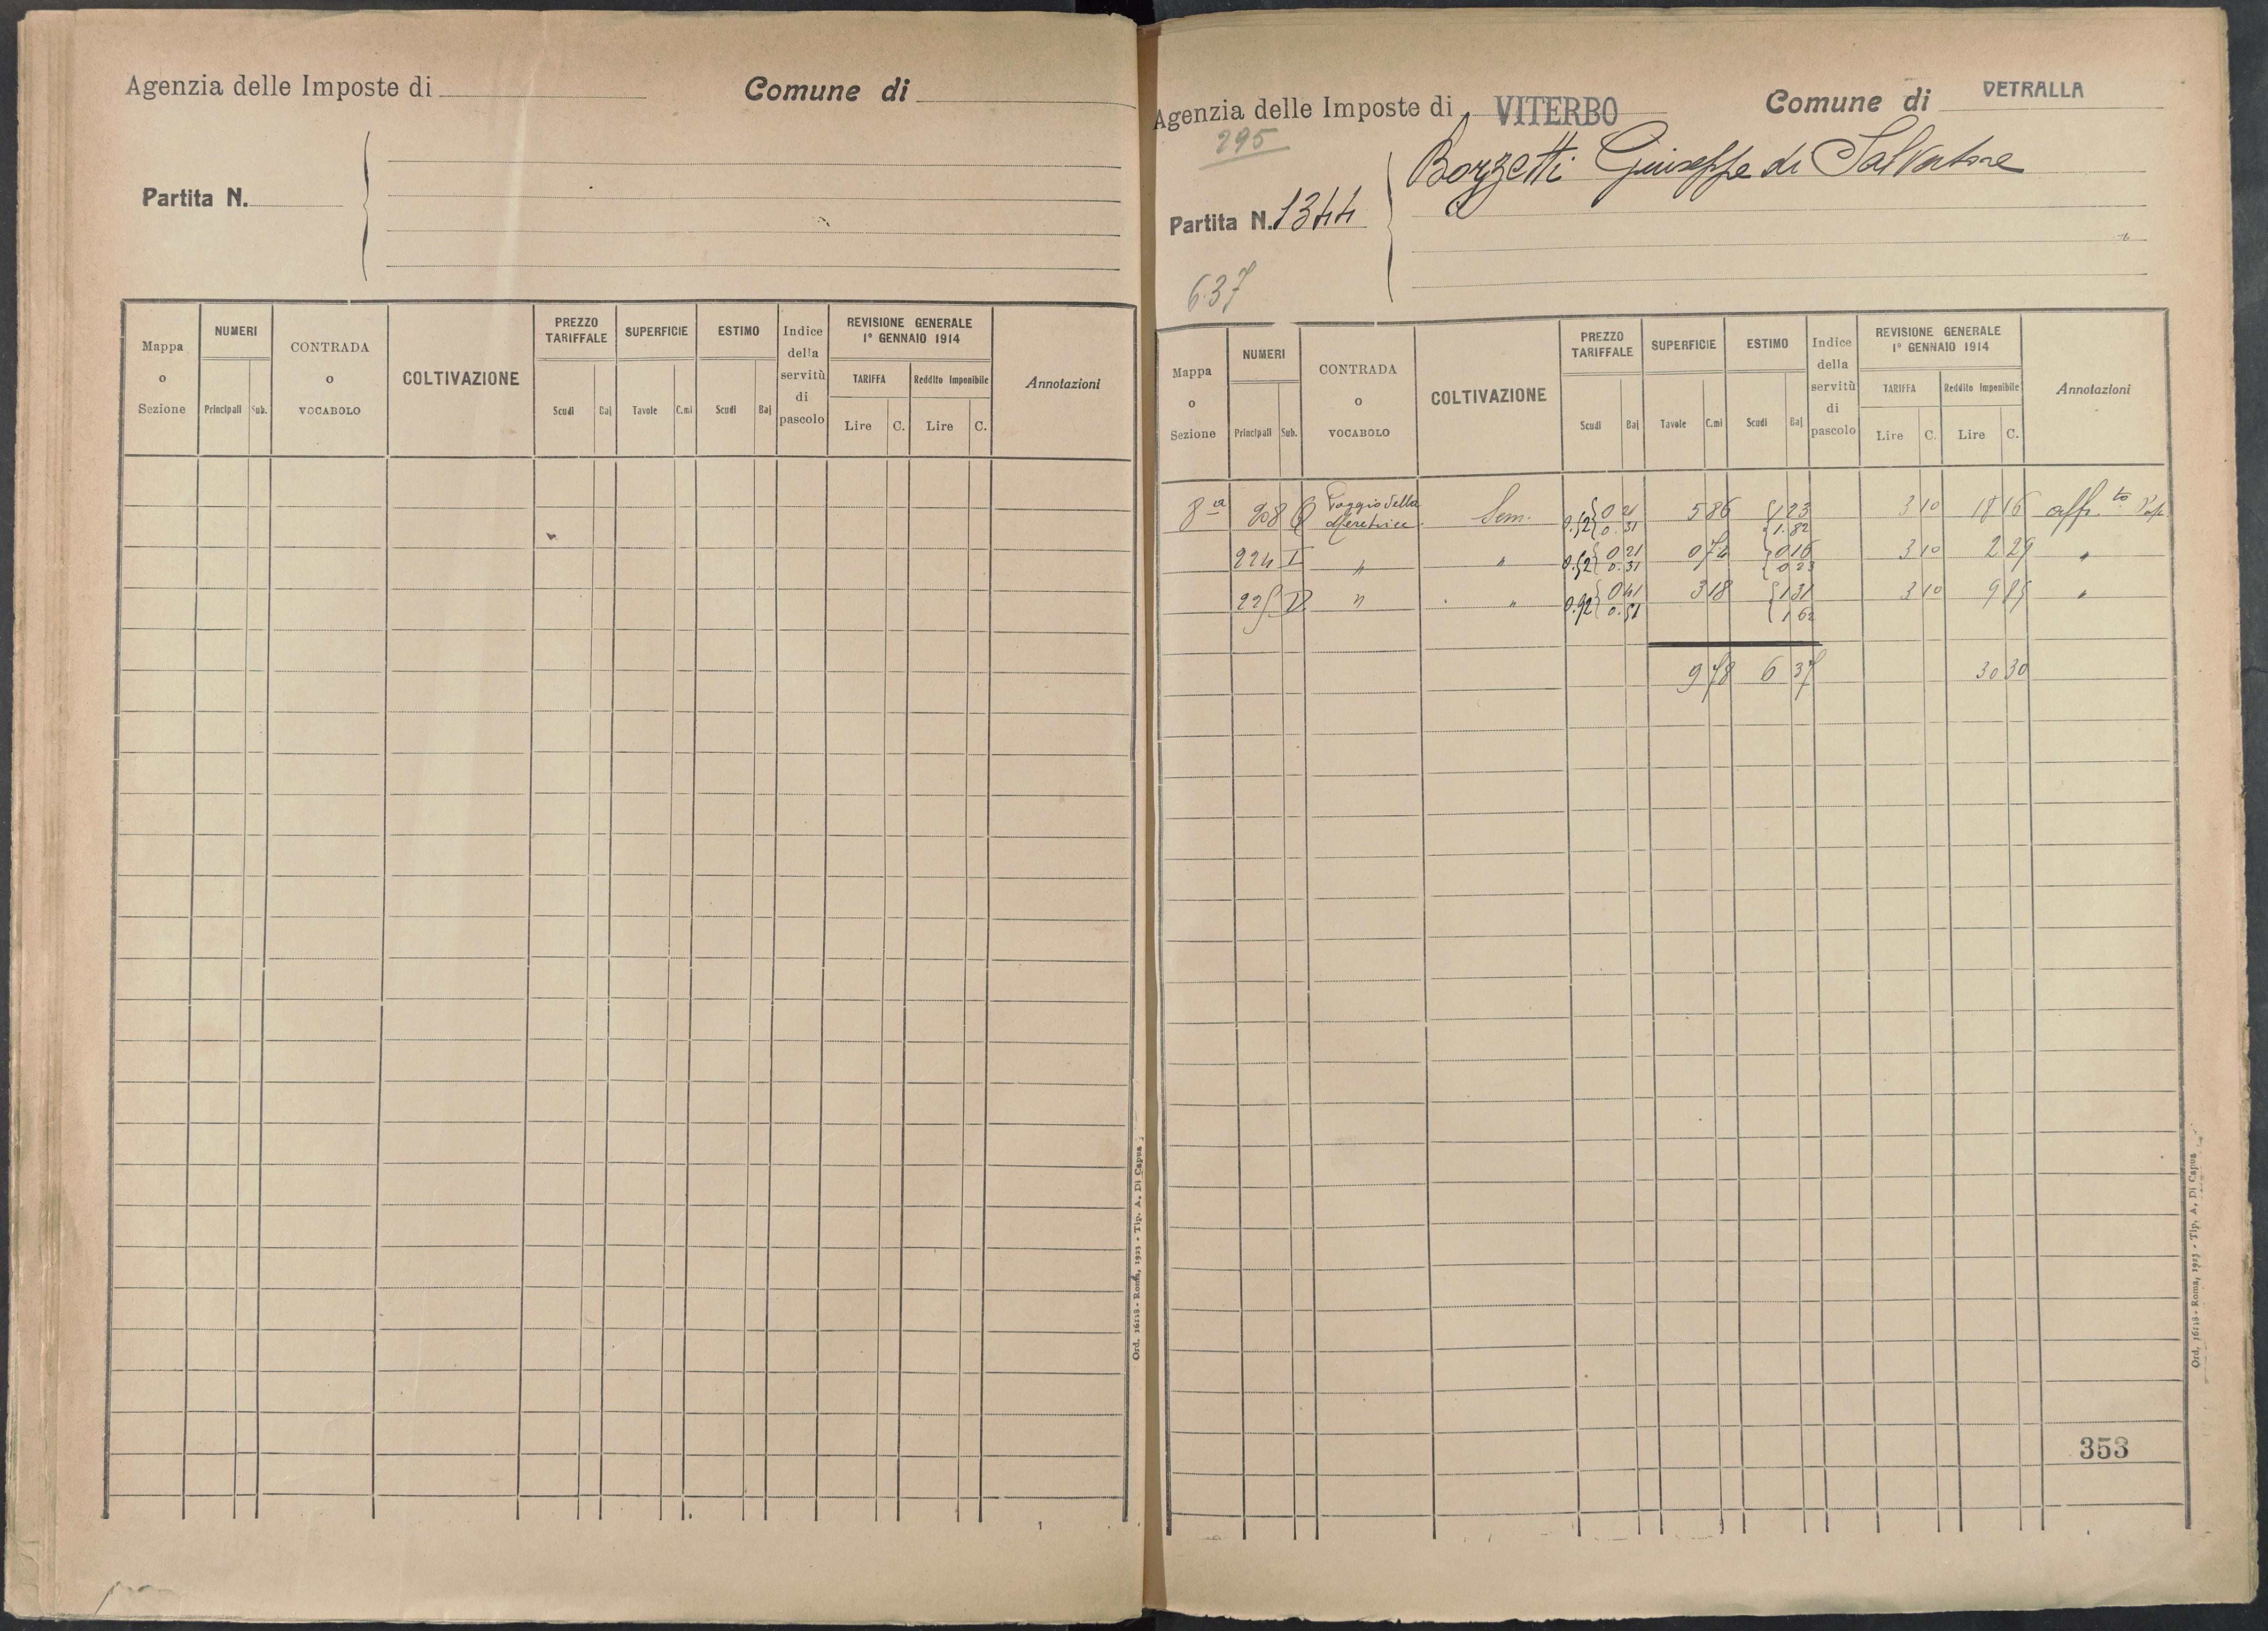 Agenzia delle Imposte di
Comune di
Partita N.
Mappa o Sezione
NUMERI
Principali Sub.
CONTRADA o VOCABOLO
COLTIVAZIONE
PREZZO TARIFFALE
Scudi Baj
SUPERFICIE
Tavole C.mi
ESTIMO
Scudi Baj
Indice della servitù di pascolo
REVISIONE GENERALE
1° GENNAIO 1914
TARIFFA
Lire C.
Reddito Imponibile
Lire C.
Annotazioni
Ord. 16118 - Roma, 1923 - Tip. A. Di Capua
Agenzia delle Imposte di VITERBO
Comune di VETRALLA
295
Borzetti Giuseppe di Salvatore
Partita N. 1344
6.37
Mappa o Sezione
NUMERI
Principali Sub.
CONTRADA o VOCABOLO
COLTIVAZIONE
PREZZO TARIFFALE
Scudi Baj
SUPERFICIE
Tavole C.mi
ESTIMO
Scudi Baj
Indice della servitù di pascolo
REVISIONE GENERALE
1° GENNAIO 1914
TARIFFA
Lire C.
Reddito Imponibile
Lire C.
Annotazioni
8a 208 Poggio della Meretrice Sem. 0.52 { 0 21 5 86 { 1 23 3 10 18 16 aff.to
0.31 1.82
224 I " " 0.52 { 0 21 0 74 { 0 16 3 10 2 29 "
0.31 0 23
225 " " 0.92 { 0 41 3 18 { 1 31 3 10 9 85 "
0.51 1 62
9 78 6 37 30 30
353
Ord. 16118 - Roma, 1923 - Tip. A. Di Capua